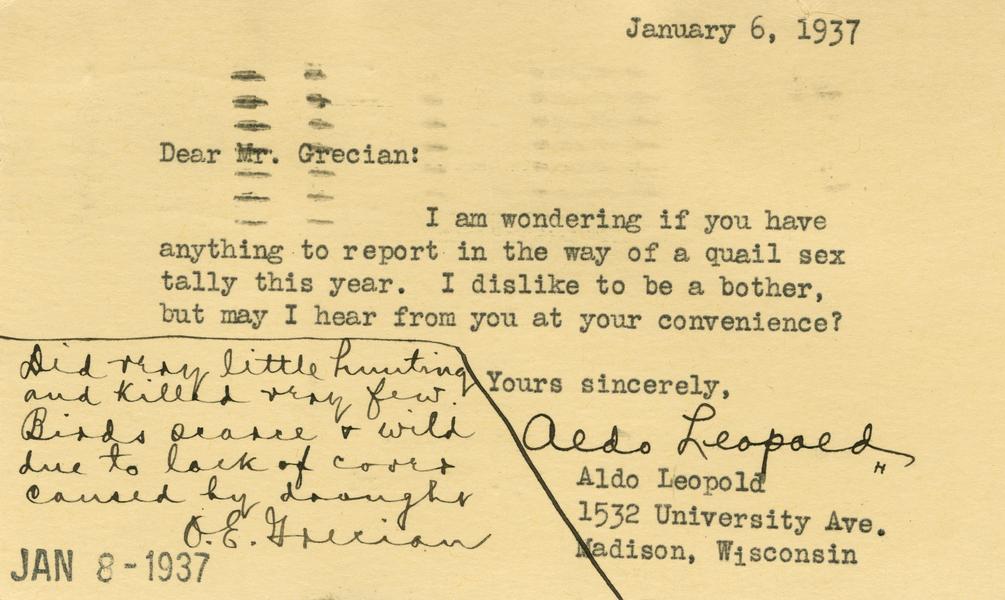 January 6, 1937
Dear Mr. Grecian:
I am wondering if you have
anything to report in the way of a quail sex
tally this year. I dislike to be a bother,
but may I hear from you at your convenience?
Yours sincerely,
Aldo Leopold
H
Aldo Leopold
1532 University Ave.
Madison, Wisconsin
Did very little hunting
and killed very few.
Birds scarce & wild
due to lack of cover
caused by drought
O.E. Grecian
JAN 8-1937